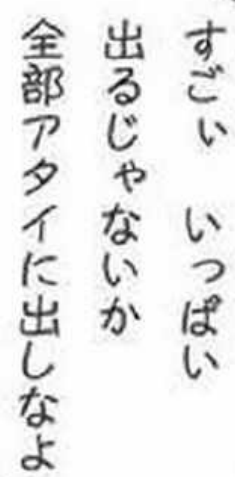 すごぃ いっぱい
出るじゃないか
全部アタイに出しなよ